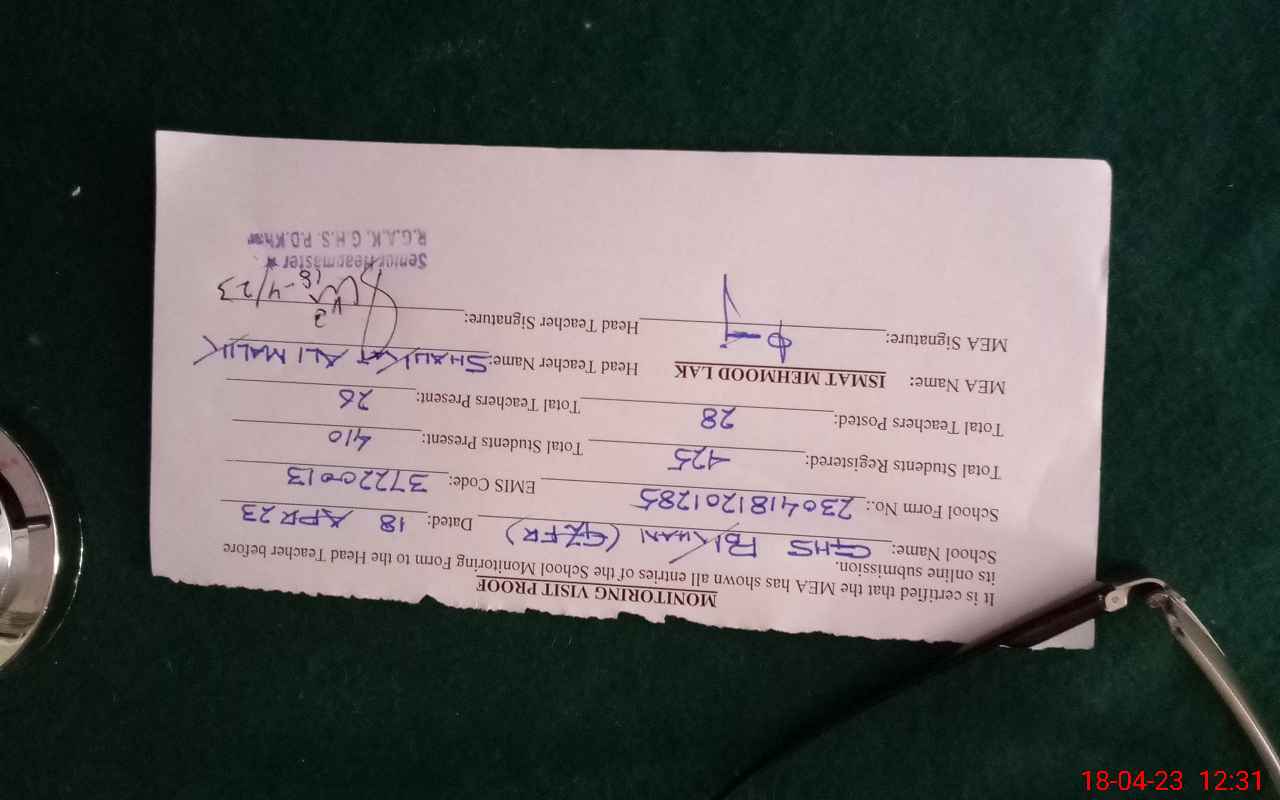 MONITORING VISIT PROOF
It is certified that the MEA has shown all entries of the School Monitoring Form to the Head Teacher before
its online submission.
School Name: GHS PDKHAN (GZFR) Dated: 18 APR 23
School Form No.: 2304181201285 EMIS Code: 37220013
Total Students Registered: 425 Total Students Present: 410
Total Teachers Posted: 28 Total Teachers Present: 26
MEA Name: ISMAT MEHMOOD LAK Head Teacher Name: SHAUKAT ALI MALIK
MEA Signature: Head Teacher Signature:
18-4/23
Senior Headmaster
R.G.A.K. G.H.S. P.D.Khan
18-04-23 12:31